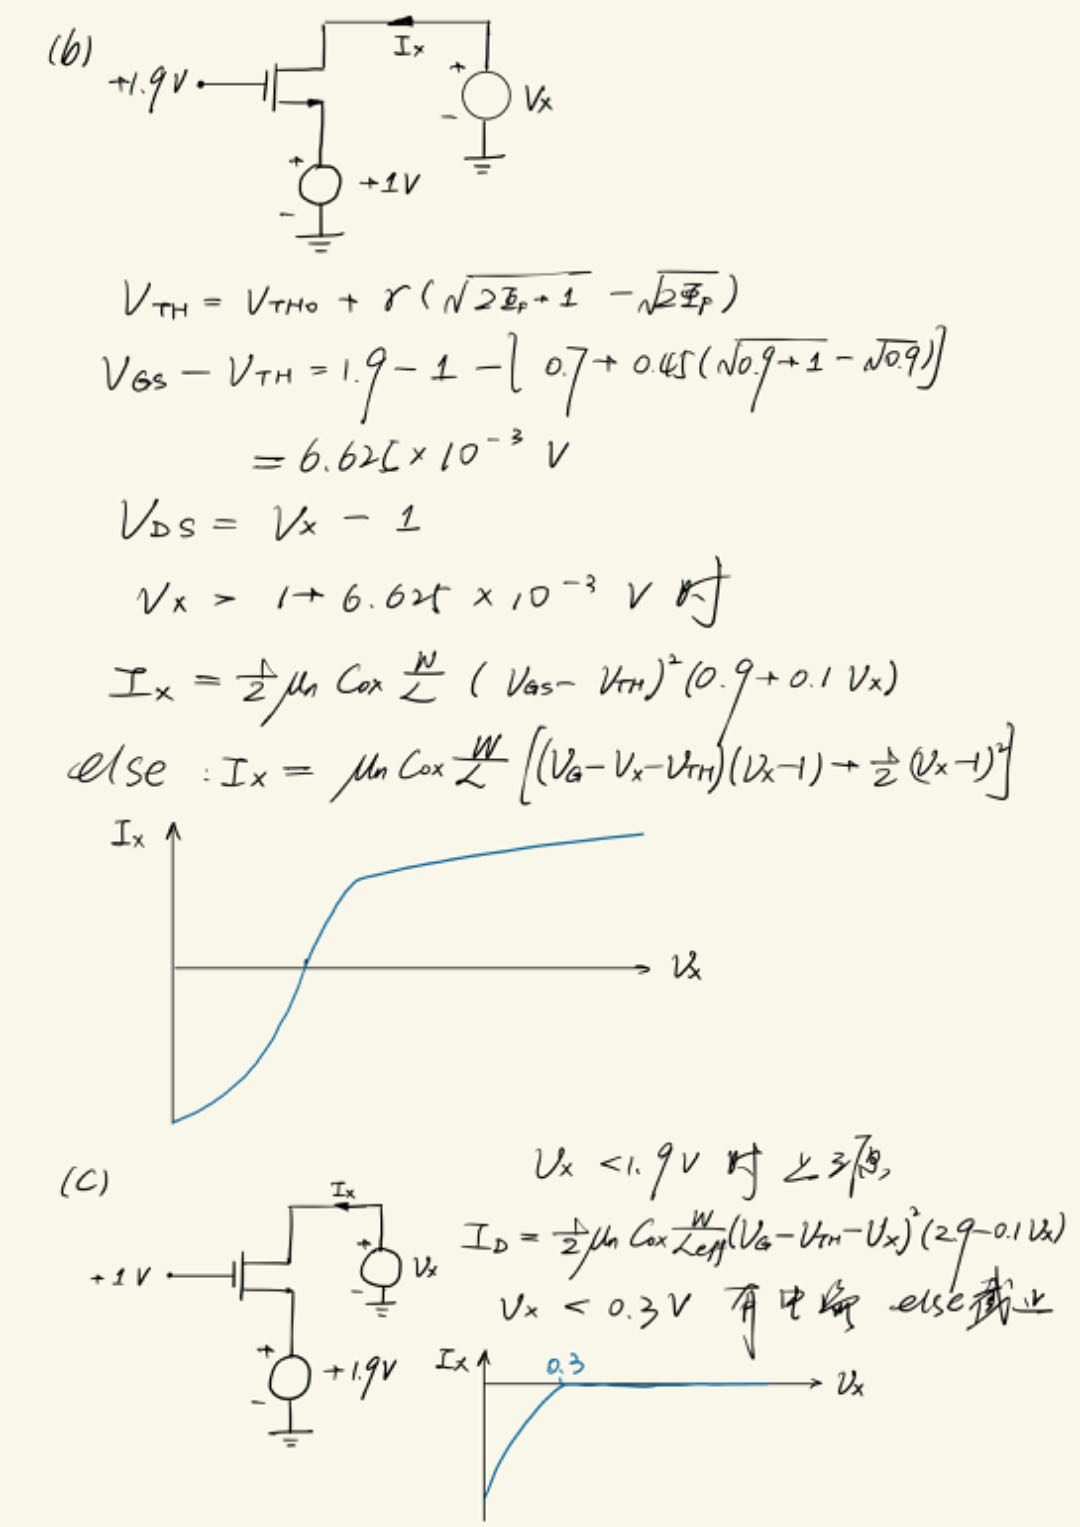 (b)
+1.9V
Ix
+
-
Vx
+
-
+1V
V_TH = V_TH0 + r(√(2Φ_F+1) - √(2Φ_F))
V_GS - V_TH = 1.9 - 1 - [0.7 + 0.45(√(0.9+1) - √0.9)]
= 6.625 × 10⁻³ V
V_DS = Vx - 1
Vx > 1 + 6.625 × 10⁻³ V 时
Ix = 1/2 μn Cox W/L (V_GS - V_TH)² (0.9 + 0.1 Vx)
else : Ix = μn Cox W/L [(V_G - Vx - V_TH)(Vx-1) + 1/2 (Vx-1)²]
Ix
Vx
(C)
Ix
+1V
+
-
Vx
+
-
+1.9V
Vx < 1.9V 时
I_D = 1/2 μn Cox W/Leff (V_G - V_TH - Vx)² (2.9 - 0.1 Vx)
Vx < 0.3V 有电流 else 截止
Ix
0.3
Vx